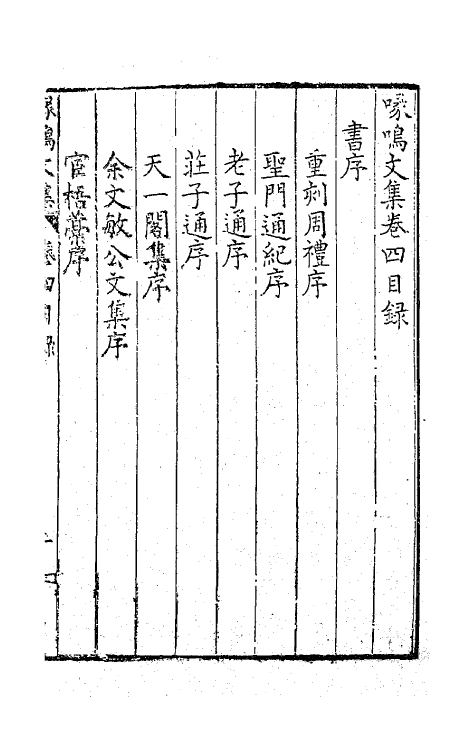 喙鳴文集卷四目録
書序
重刻周禮序
聖門通紀序
老子通序
莊子通序
天一閣集序
余文敏公文集序
宦梧藁序
喙鳴文集 卷四目録